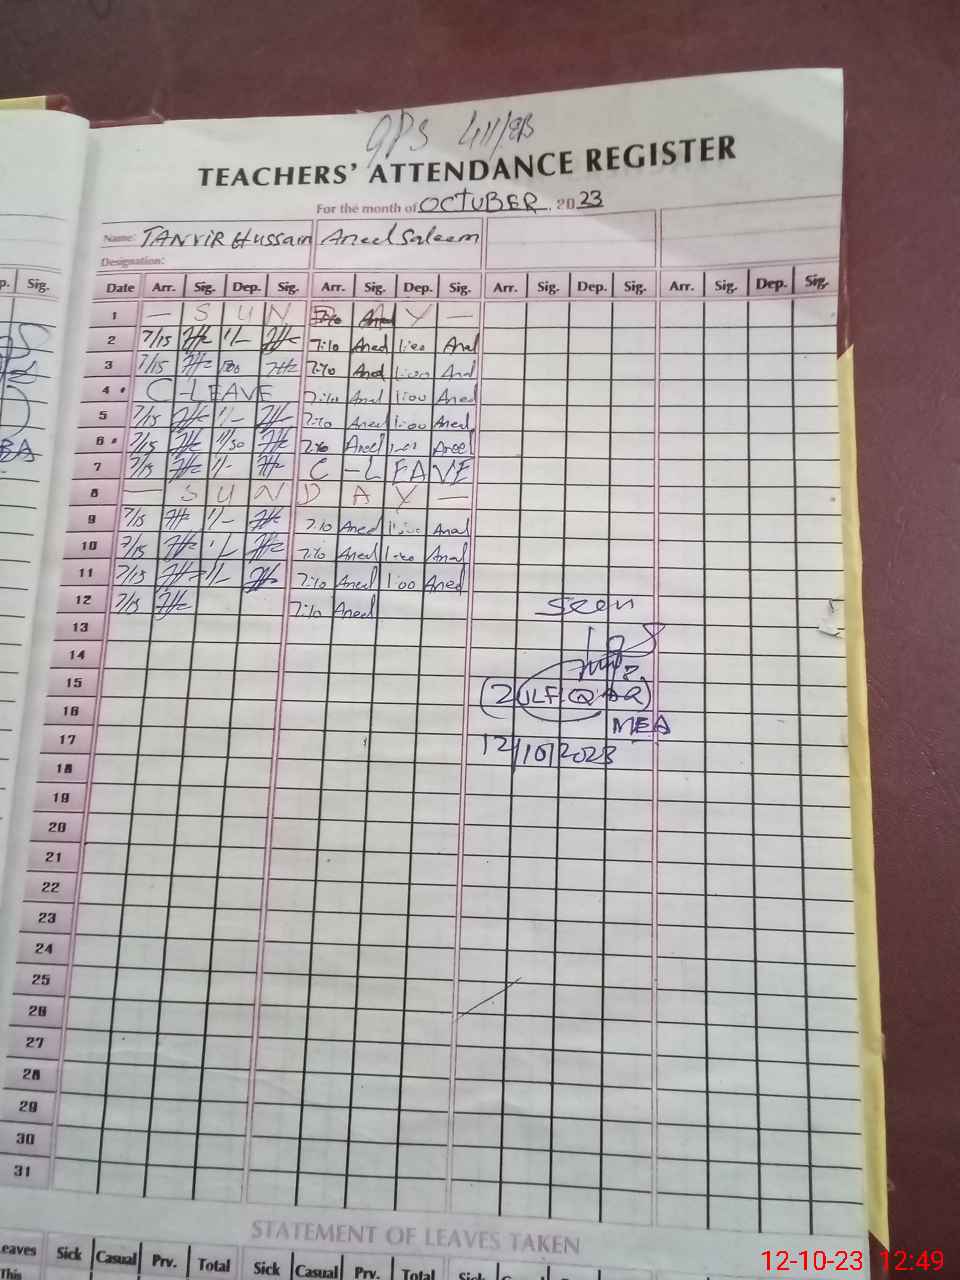 GPS 411/EB
TEACHERS' ATTENDANCE REGISTER
For the month of OCTUBER 2023
Name: TANVIR Hussain Aneel Saleem
Designation:
p. Sig. Date Arr. Sig. Dep. Sig. Arr. Sig. Dep. Sig. Arr. Sig. Dep. Sig. Arr. Sig. Dep. Sig.
1 — S U N D A Y —
2 7/15 1/- 7:10 Aneel 1:00
3 7/15 7:10 1:00
4 C-LEAVE 7:10 1:00 Aneel
5 7/15 1/- 7:10 Aneel 1:00 Aneel
6 7/15 11/30 7:10 Aneel Aneel
7 7/15 1/- C-LEAVE
8 — S U N D A Y —
9 7/15 1/- 7:10 Aneel 1:00
10 7/15 7:10 Aneel 1:00
11 7/15 1/- 7:10 Aneel 1:00 Aneel
12 7/15 7:10 Aneel Seen
13
14
15 (ZULFIQAR)
16 MEA
17 12/10/2023
18
19
20
21
22
23
24
25
26
27
28
29
30
31
STATEMENT OF LEAVES TAKEN
Leaves Sick Casual Prv. Total Sick Casual Prv. Total
This
12-10-23 12:49